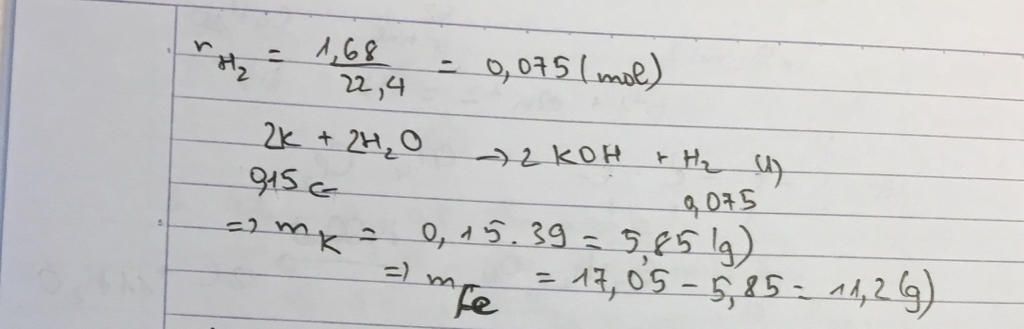 n H₂ = 1,68 / 22,4 = 0,075 (mol)
2K + 2H₂O → 2 KOH + H₂ (1)
0,15 ← 0,075
=> m K = 0,15 . 39 = 5,85 (g)
=> m Fe = 17,05 - 5,85 = 11,2 (g)